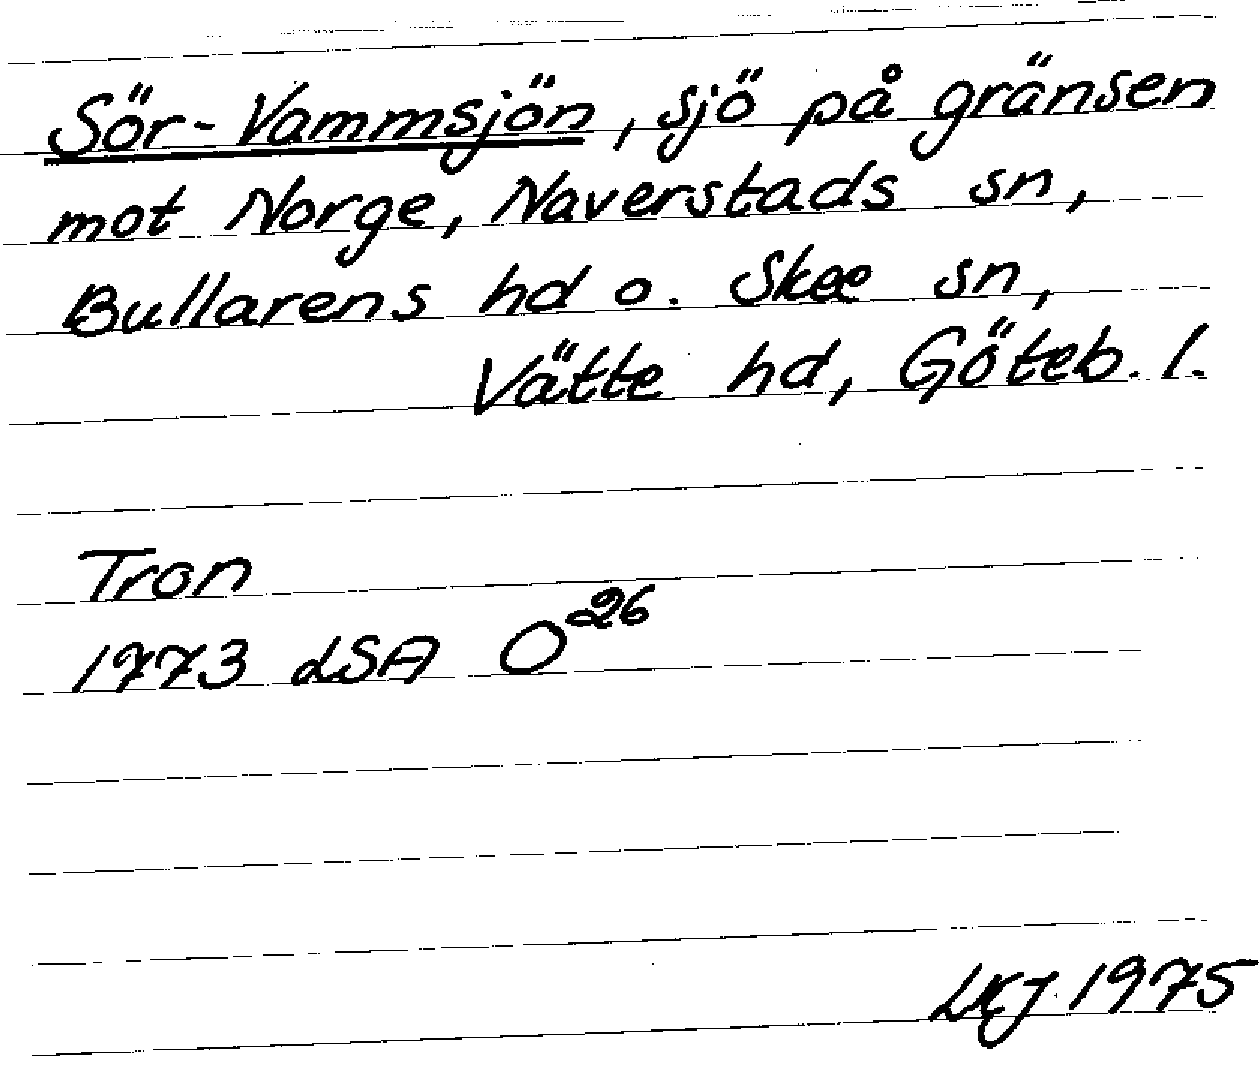 Sör-Vammsjön, sjö på gränsen
mot Norge, Naverstads sn,
Bullarens hd o. Skee sn,
Vätte hd, Göteb. l.
Tron
1773 LSA O²⁶
LKJ 1975